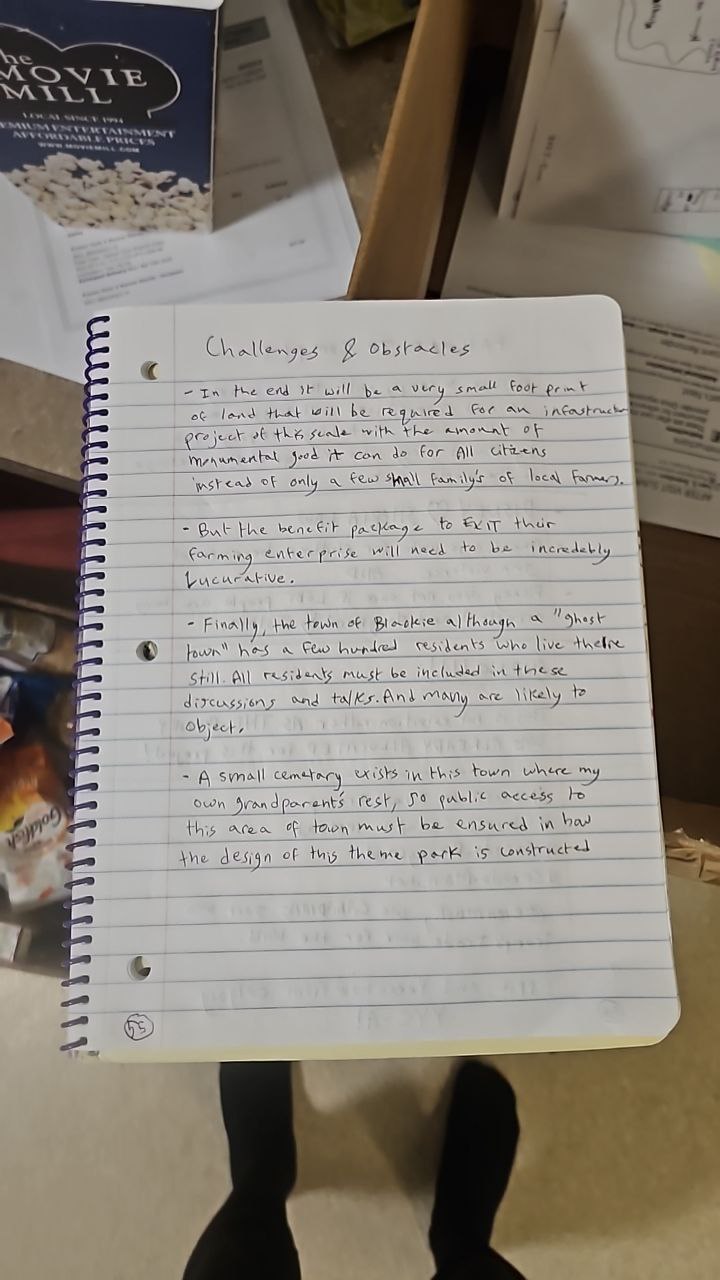 The
MOVIE
MILL
LOCAL SINCE 1994
PREMIUM ENTERTAINMENT
AFFORDABLE PRICES
WWW.MOVIEMILL.COM
Challenges & Obstacles
- In the end it will be a very small foot print
of land that will be required for an infastructu
project of this scale with the amount of
monumental good it can do for All citizens
instead of only a few small family's of local farmers.
- But the benefit package to EXIT their
farming enterprise will need to be incredebly
Lucurative.
- Finally, the town of Blackie although a "ghost
town" has a few hundred residents who live there
still. All residents must be included in these
discussions and talks. And many are likely to
object.
- A small cemetary exists in this town where my
own grandparent's rest, so public access to
this area of town must be ensured in how
the design of this theme park is constructed
54
Goldfish